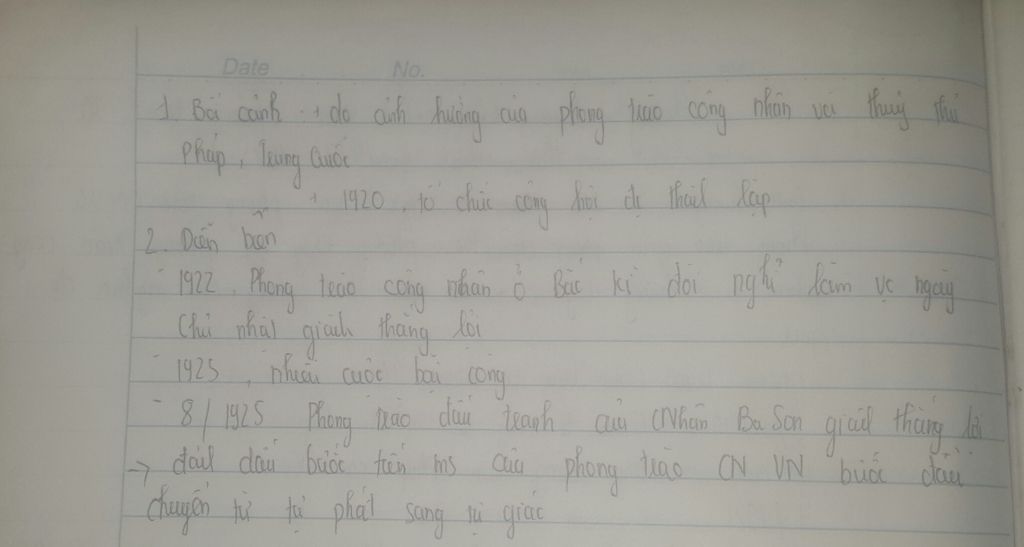 Date No.
1. Bối cảnh : + do ảnh hưởng của phong trào công nhân và thuỷ thủ
Pháp, Trung Quốc
+ 1920, tổ chức công hội đc thành lập
2. Diễn biến
- 1922, Phong trào công nhân ở Bắc kì đòi nghỉ làm vc ngày
Chủ nhật giành thắng lợi
- 1925, nhiều cuộc bãi công
- 8/1925 Phong trào đấu tranh của CNhân Ba Son giành thắng lợi
→ đánh dấu bước tiến ms của phong trào CN VN bước đầu
chuyển từ tự phát sang tự giác